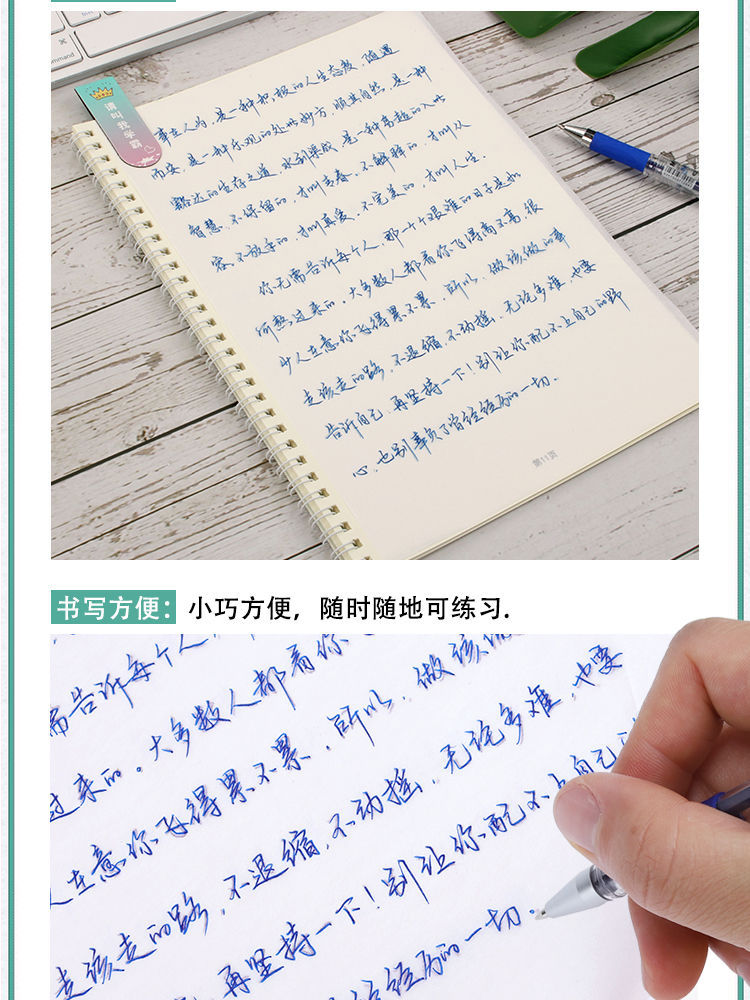 command
请叫我学霸
事在人为，是一种积极的人生态度，随遇
而安，是一种乐观的处世妙方，顺其自然，是一种
豁达的生存之道，水到渠成，是一种高超的入世
智慧。不保留的，才叫青春。不解释的，才叫从
容。不放手的，才叫真爱。不完美的，才叫人生。
你无需告诉每个人，那一个个艰难的日子是如
何熬过来的。大多数人都看你飞得高不高，很
少人在意你飞得累不累。所以，做该做的事
走该走的路，不退缩，不动摇，无论多难，也要
告诉自己，再坚持一下！别让你配不上自己的野
心，也别辜负了曾经经历的一切。
第11页
书写方便：小巧方便，随时随地可练习.
需告诉每个人，那
过来的。大多数人都看你
人在意你飞得累不累，所以，做该做
走该走的路，不退缩，不动摇，无论多难，也要
再坚持一下！别让你配不上自己的
经历的一切。